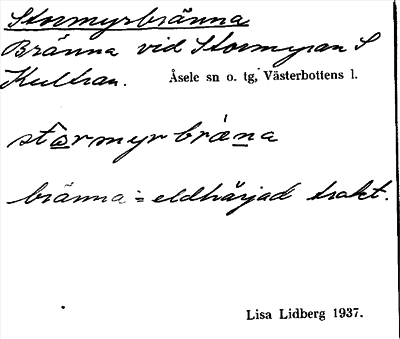 Stormyrbränna
Bränna vid Stormyran S
Kultran. Åsele sn o. tg, Västerbottens l.
stårmyrbrä́na
bränna = eldhärjad trakt.
Lisa Lidberg 1937.